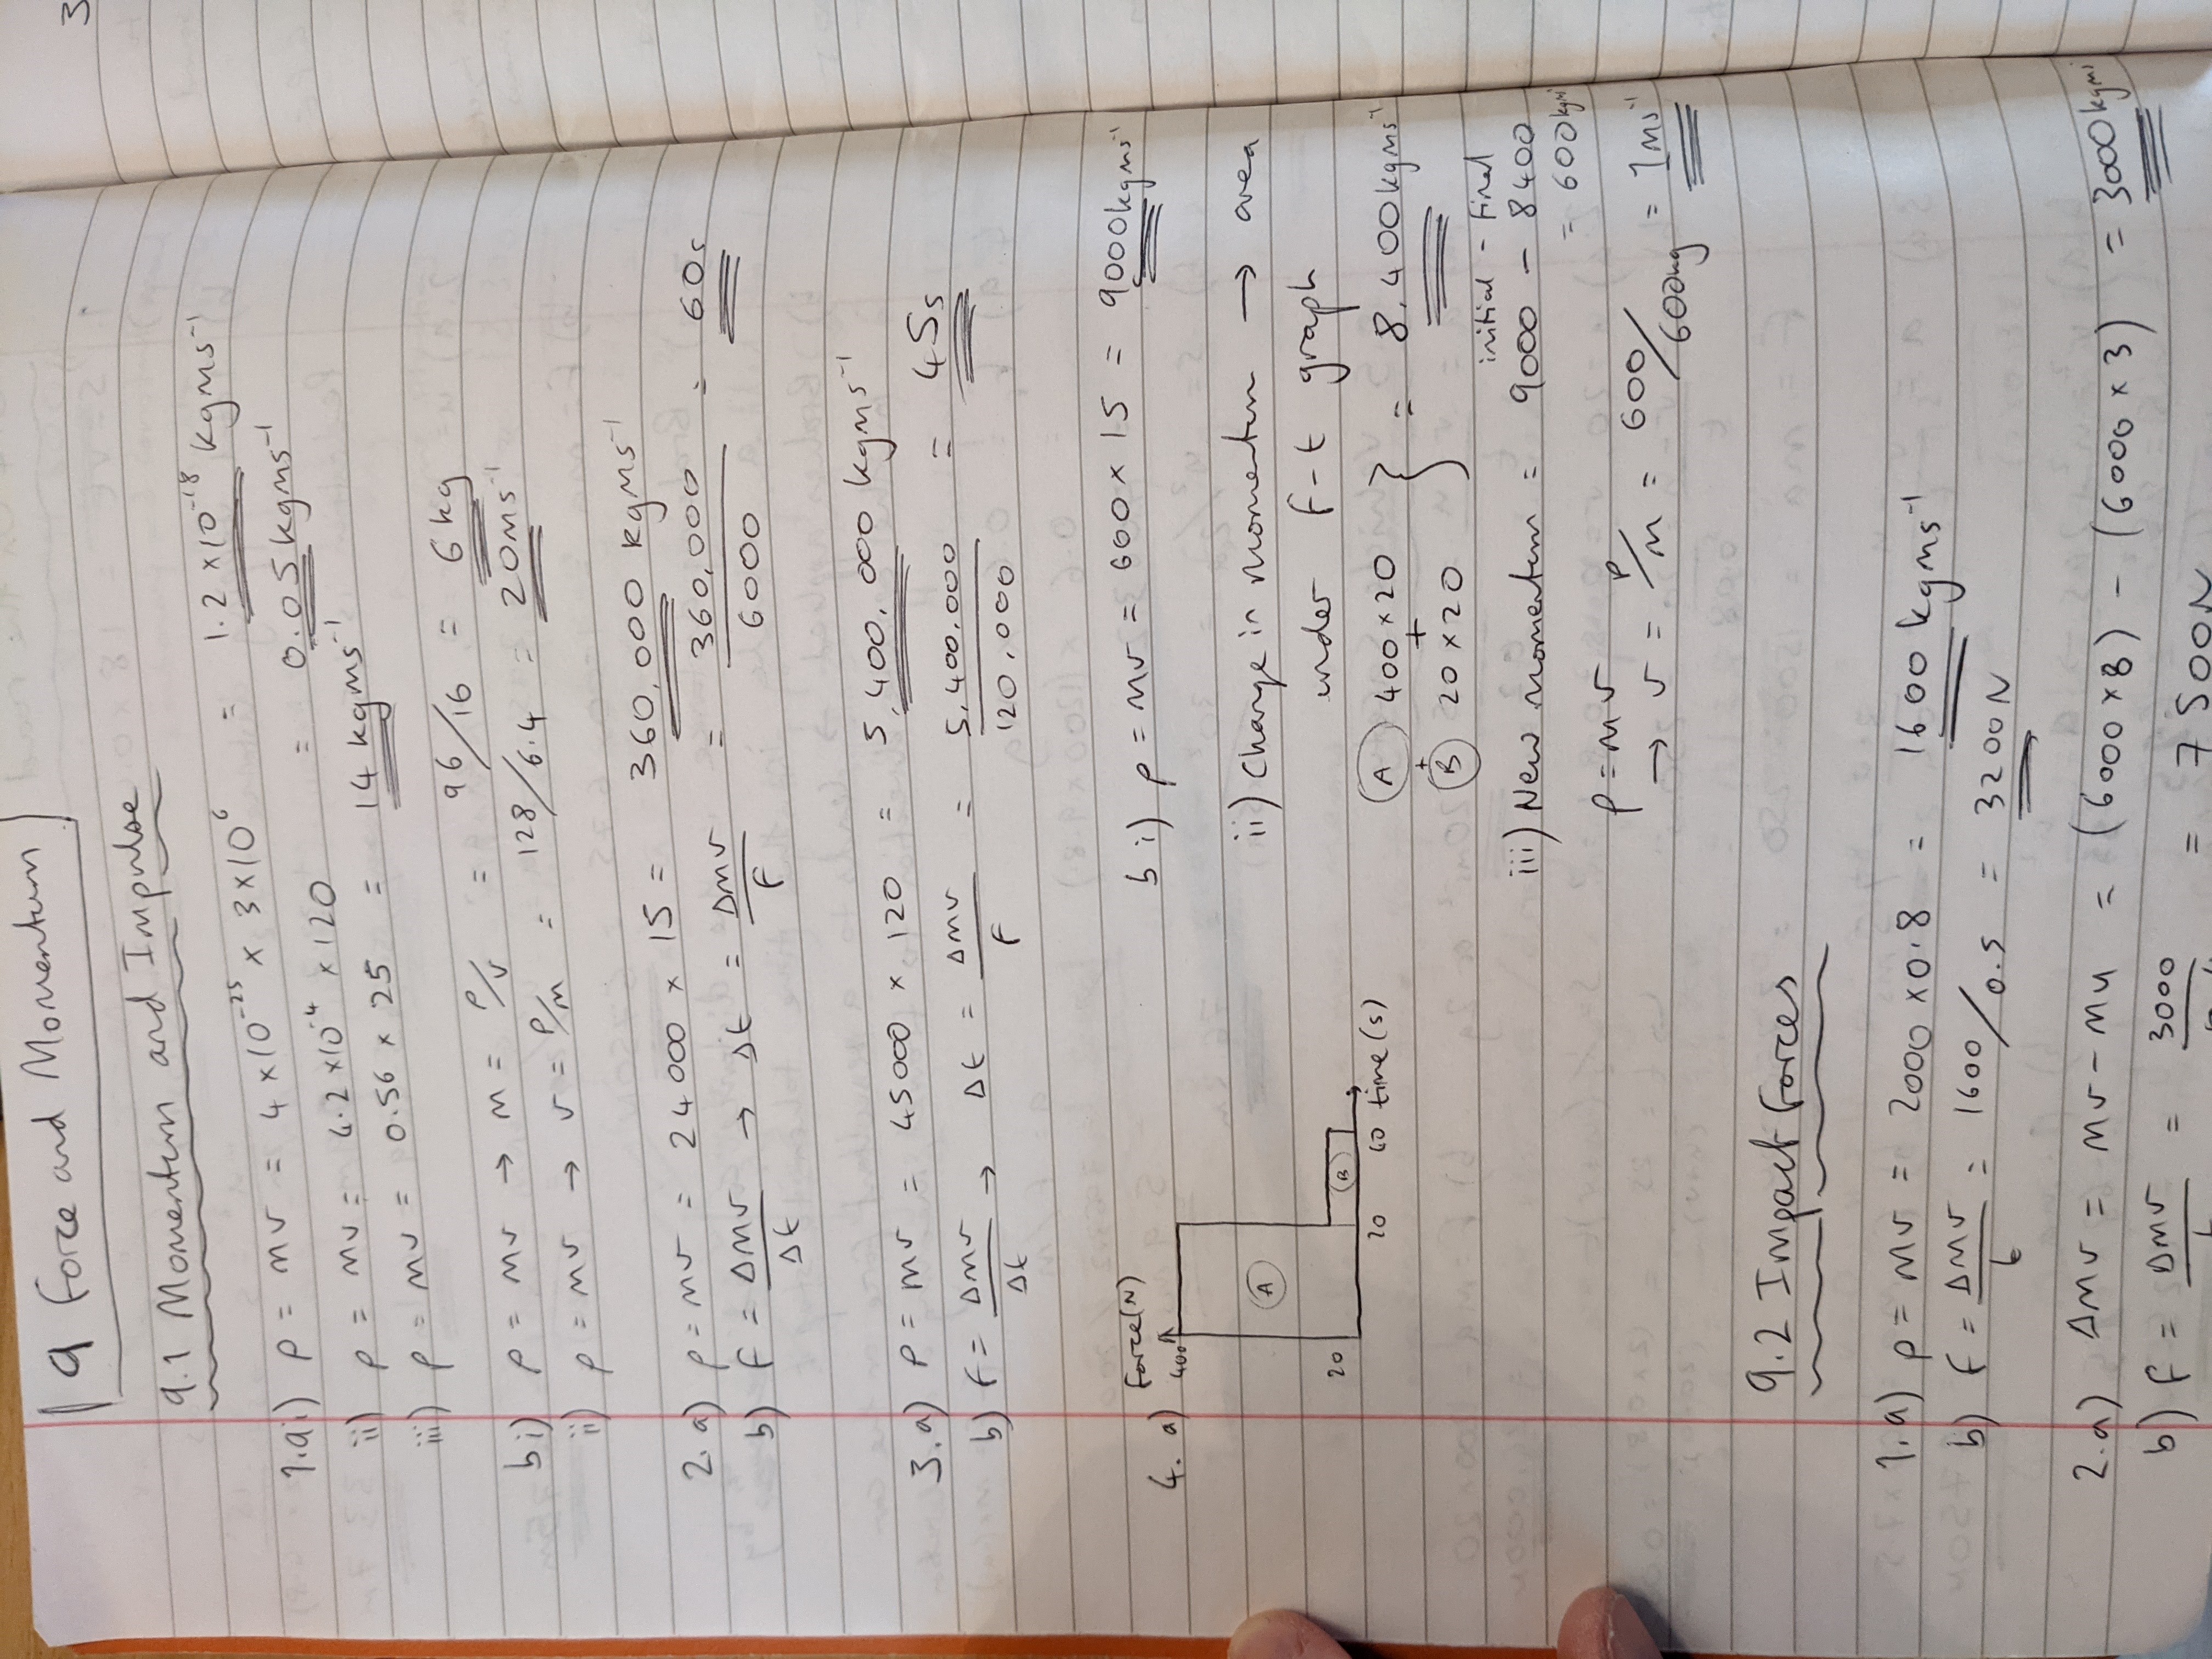 3
9 Force and Momentum
9.1 Momentum and Impulse
1.a i) p = mv = 4 × 10⁻²⁵ × 3 × 10⁶ = 1.2 × 10⁻¹⁸ kgms⁻¹
ii) p = mv = 4.2 × 10⁻⁴ × 120 = 0.05 kgms⁻¹
iii) p = mv = 0.56 × 25 = 14 kgms⁻¹
b i) p = mv → m = p/v = 96/16 = 6 kg
ii) p = mv → v = p/m = 128/6.4 = 20 ms⁻¹
2.a) p = mv = 24000 × 15 = 360,000 kgms⁻¹
b) F = Δmv/Δt → Δt = Δmv/F = 360,000/6000 = 60s
3.a) p = mv = 45000 × 120 = 5,400,000 kgms⁻¹
b) F = Δmv/Δt → Δt = Δmv/F = 5,400,000/120,000 = 45s
4. a) Force(N)
400
A
20
B
20 60 time(s)
b i) p = mv = 600 × 15 = 9000 kgms⁻¹
ii) Change in momentum → area
under F-t graph
A 400 × 20
+ + } = 8,400 kgms⁻¹
B 20 × 20
initial - final
iii) New momentum = 9000 - 8400
= 600 kgms⁻¹
p = mv
→ v = p/m = 600/600kg = 1ms⁻¹
9.2 Impact Forces
1.a) p = mv = 2000 × 0.8 = 1600 kgms⁻¹
b) F = Δmv/t = 1600/0.5 = 3200N
2.a) Δmv = mv - mu = (6000 × 8) - (6000 × 3) = 3000 kgms⁻¹
b) F = Δmv/t = 3000 = 7500N